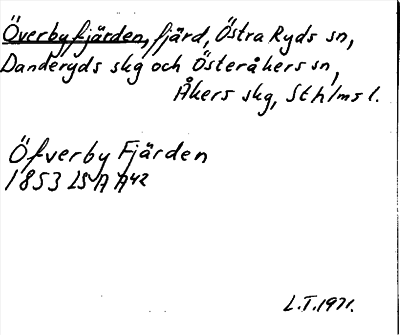 Överbyfjärden, fjärd, Östra Ryds sn,
Danderyds skg och Österåkers sn,
Åkers skg, Sthlms l.
Öfverby Fjärden
1853 LSA A42
L.T. 1971.